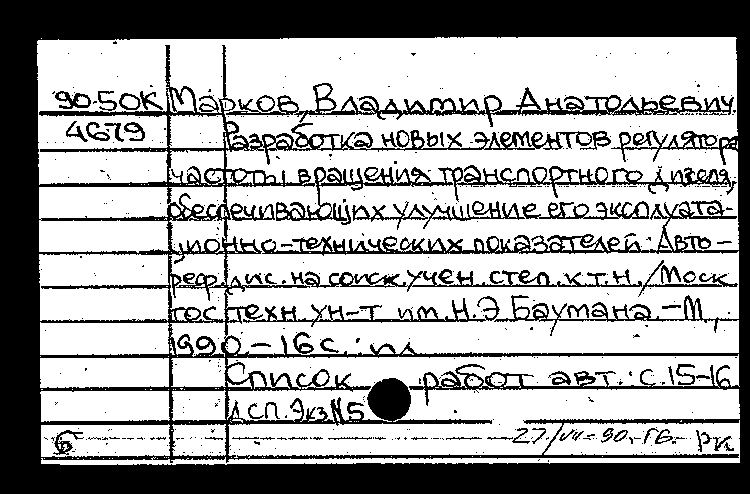 90-50К Марков, Владимир Анатольевич
4679 Разработка новых элементов регулятора
частоты вращения транспортного дизеля,
обеспечивающих улучшение его эксплуата-
ционно-технических показателей: Авто-
реф. дис. на соиск. учен. степ. к.т.н. /Моск
гос техн. ун-т им. Н.Э Баумана. -М.,
1990. - 16 с.: ил
Список работ авт.: с. 15-16
ДСП. Экз N5
6 27/VII-90.- РК